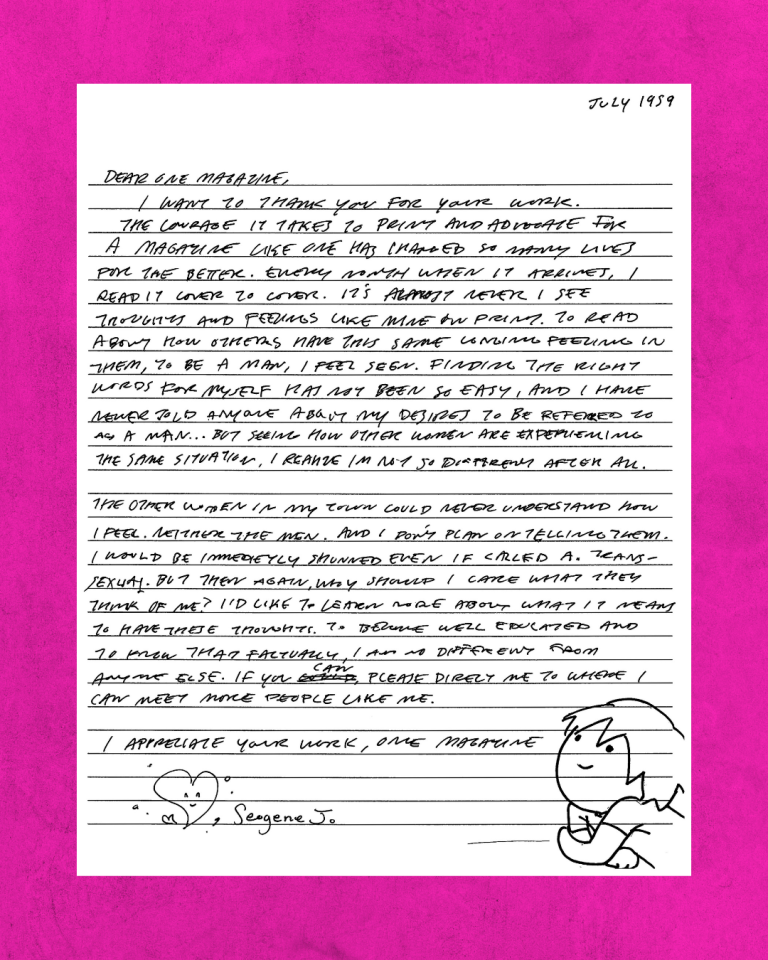 JULY 1959
DEAR ONE MAGAZINE,
I WANT TO THANK YOU FOR YOUR WORK.
THE COURAGE IT TAKES TO PRINT AND ADVOCATE FOR
A MAGAZINE LIKE ONE HAS CHANGED SO MANY LIVES
FOR THE BETTER. EVERY MONTH WHEN IT ARRIVES, I
READ IT COVER TO COVER. IT'S ALMOST NEVER I SEE
THOUGHTS AND FEELINGS LIKE MINE IN PRINT. TO READ
ABOUT HOW OTHERS HAVE THIS SAME LONGING FEELING IN
THEM, TO BE A MAN, I FEEL SEEN. FINDING THE RIGHT
WORDS FOR MYSELF HAS NOT BEEN SO EASY, AND I HAVE
NEVER TOLD ANYONE ABOUT MY DESIRES TO BE REFERRED TO
AS A MAN... BUT SEEING HOW OTHER WOMEN ARE EXPERIENCING
THE SAME SITUATION, I REALIZE I'M NOT SO DIFFERENT AFTER ALL.
THE OTHER WOMEN IN MY TOWN COULD NEVER UNDERSTAND HOW
I FEEL. NEITHER THE MEN. AND I DON'T PLAN ON TELLING THEM.
I WOULD BE IMMEDIETLY SHUNNED EVEN IF CALLED A. TRANS-
SEXUAL. BUT THEN AGAIN, WHY SHOULD I CARE WHAT THEY
THINK OF ME? I'D LIKE TO LEARN MORE ABOUT WHAT IT MEANS
TO HAVE THESE THOUGHTS. TO BECOME WELL EDUCATED AND
TO KNOW THAT FACTUALLY, I AM NO DIFFERENT FROM
ANYONE ELSE. IF YOU CAN, PLEASE DIRECTLY ME TO WHERE I
CAN MEET MORE PEOPLE LIKE ME.
I APPRECIATE YOUR WORK, ONE MAGAZINE
, Seogene J.